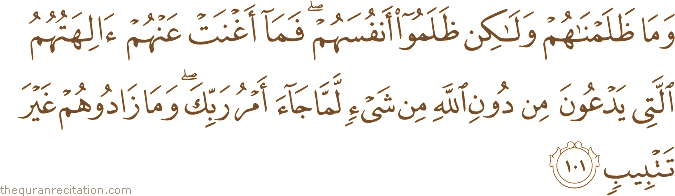 وَمَا ظَلَمْنَٰهُمْ وَلَٰكِن ظَلَمُوٓا۟ أَنفُسَهُمْ ۖ فَمَآ أَغْنَتْ عَنْهُمْ ءَالِهَتُهُمُ
ٱلَّتِى يَدْعُونَ مِن دُونِ ٱللَّهِ مِن شَىْءٍ لَّمَّا جَآءَ أَمْرُ رَبِّكَ ۖ وَمَا زَادُوهُمْ غَيْرَ
تَتْبِيبٍ ١٠١
thequranrecitation.com